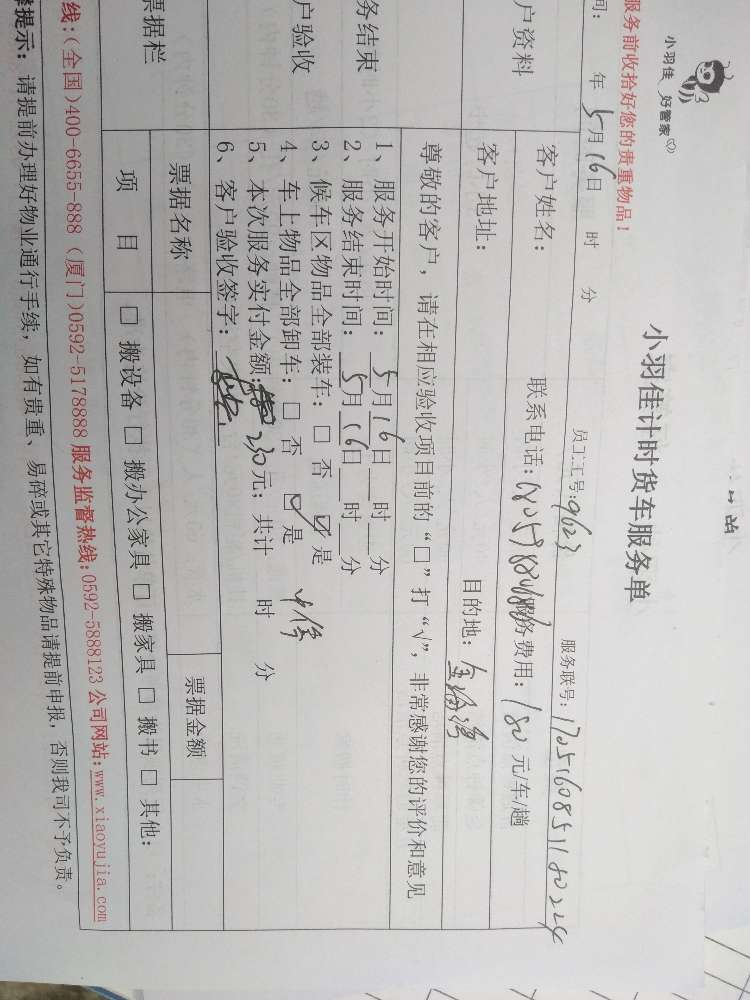 小羽佳 好管家
小羽佳计时货车服务单
服务前收拾好您的贵重物品！
间： 年 5月16日 时 分 员工工号：9623 服务联号：17051608511180224
户资料
客户姓名： 联系电话： 服务费用：180元/车/趟
客户地址： 目的地：
尊敬的客户，请在相应验收项目前的“□”打“√”，非常感谢您的评价和意见
务结束
户验收
1、服务开始时间：5月16日 时 分
2、服务结束时间：5月16日 时 分
3、候车区物品全部装车：□ 否 ☑ 是
4、车上物品全部卸车：□ 否 ☑ 是
5、本次服务实付金额：230元；共计 时 分
6、客户验收签字：
票据栏
票据名称 票据金额
项 目 □ 搬设备 □ 搬办公家具 □ 搬家具 □ 搬书 □ 其他：
线：(全国)400-6655-888 (厦门)0592-5178888 服务监督热线：0592-5888123 公司网站：www.xiaoyujia.com
提示：请提前办理好物业通行手续，如有贵重、易碎或其它特殊物品请提前申报，否则我司不予负责。